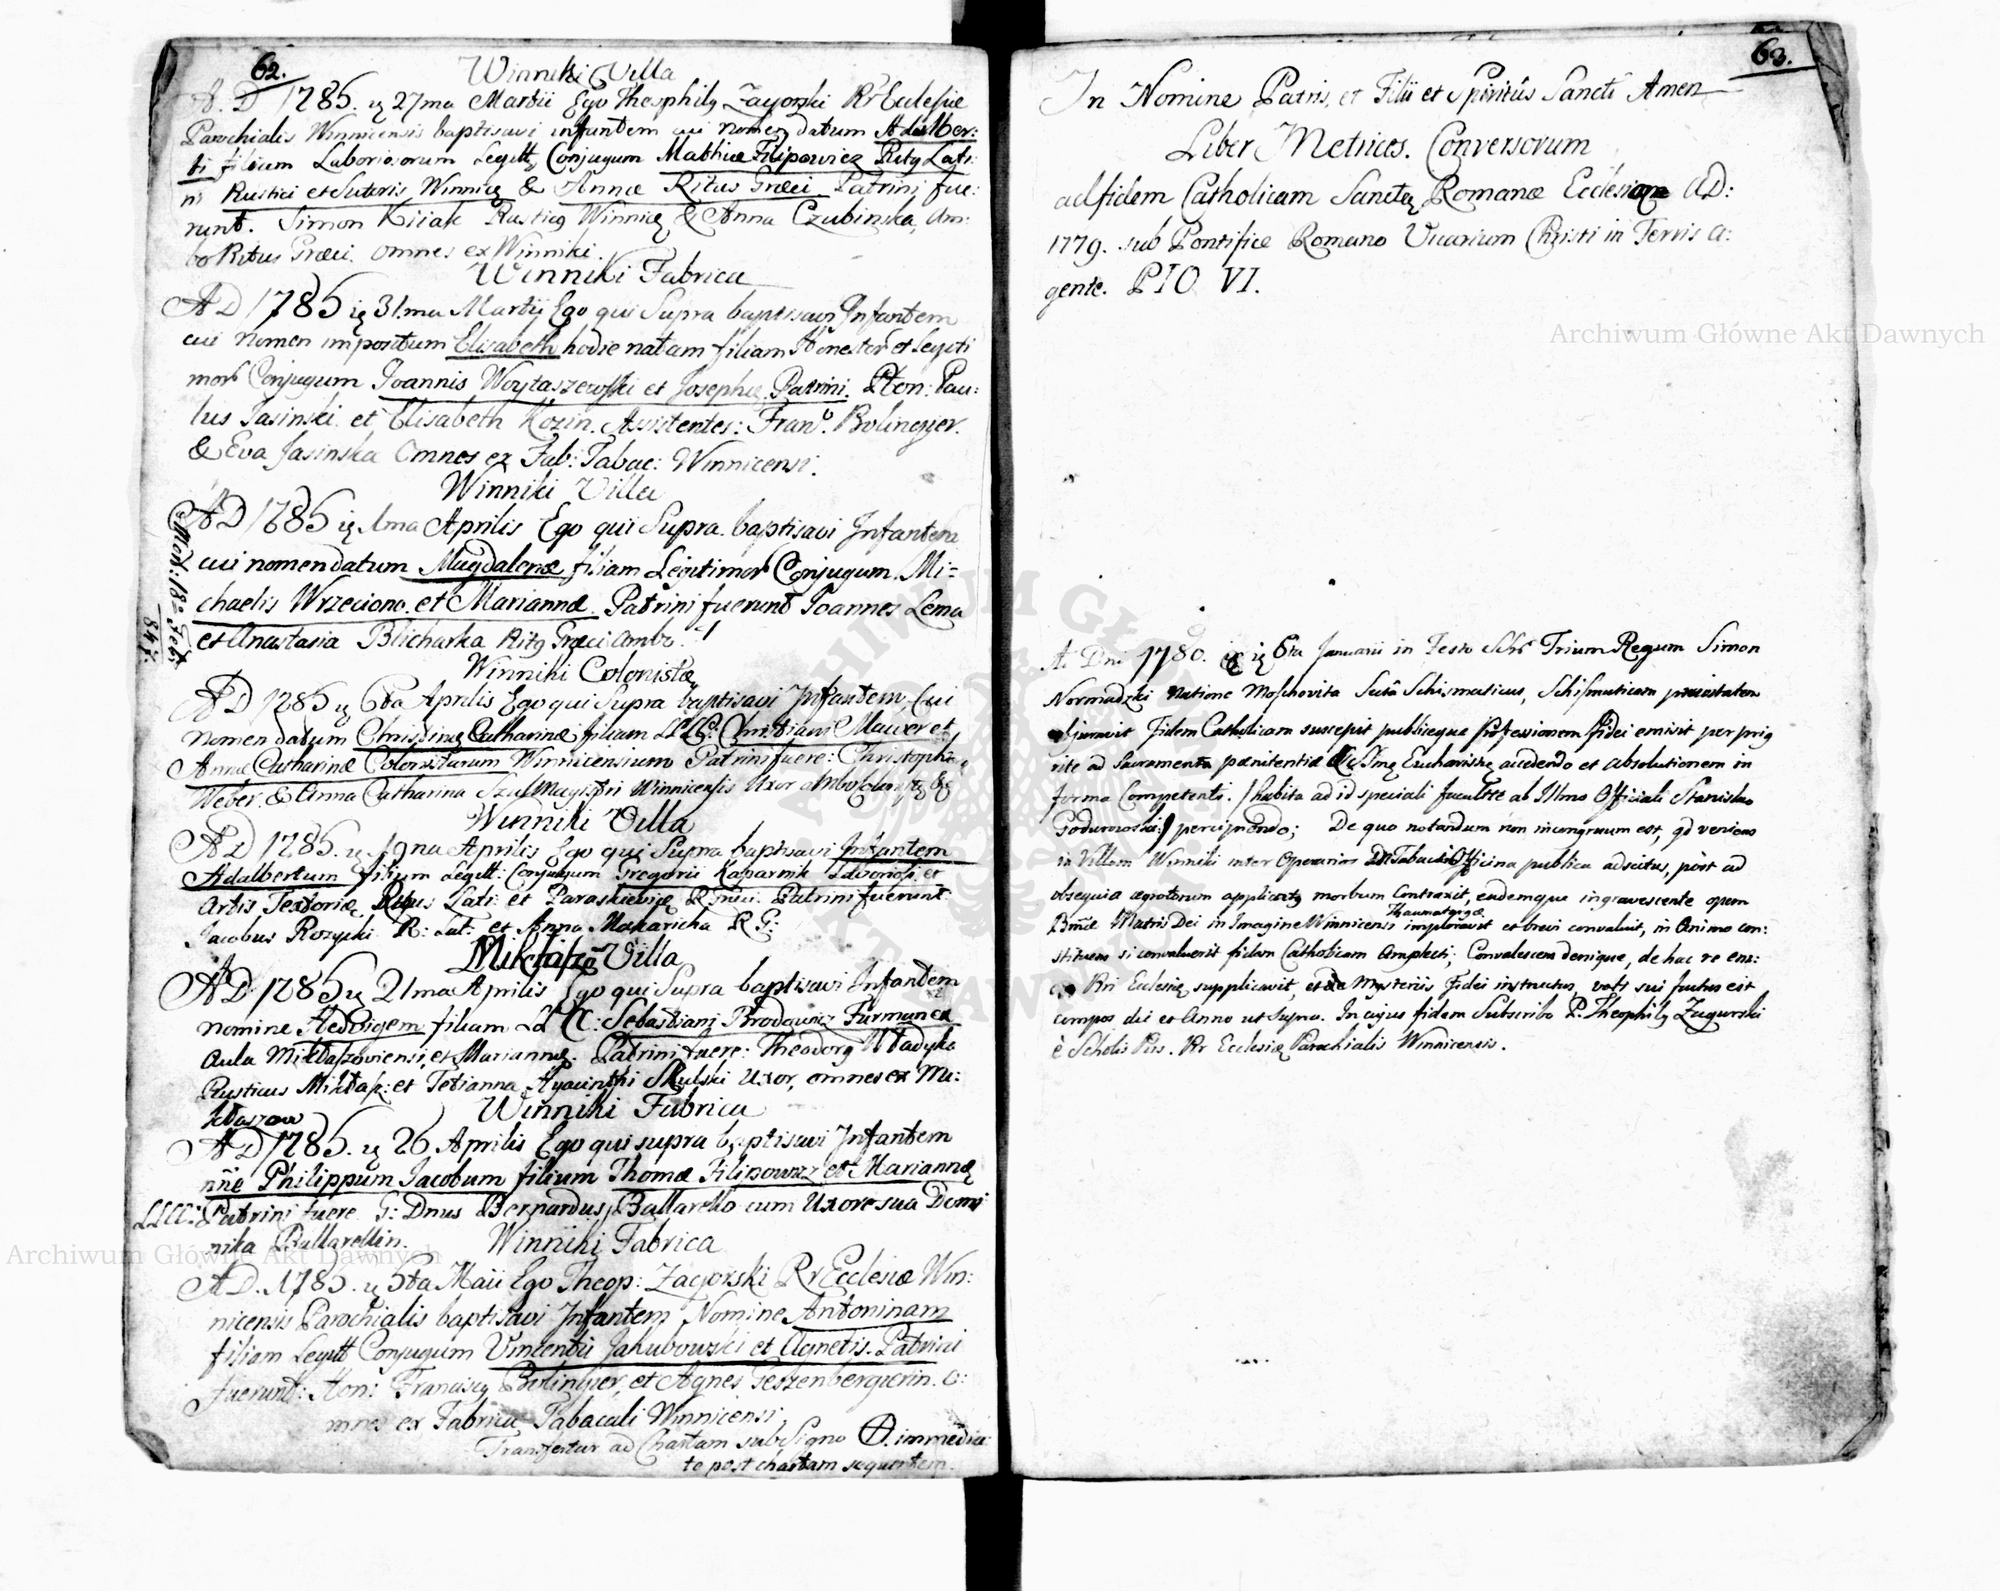 62.
Winniki Villa
A. D 1785. ię 27ma Martii Ego Theophilq Zagorski Rr Eclesiæ
Parochialis Winnicensis baptisavi infantem cui nomen datum Adalber:
ti filium Laboriosorum Legitt. Conjugum Mathiæ Filipowicz Ritq Lati:
ni Rustici et Sutoris Winnicę & Annæ Ritus Græci Patrini fue:
runt. Simon Kiiak Rusticq Winnicę & Anna Czubinska, Am:
bo Ritus Græci omnes ex Winniki.
Winniki Fabrica
A D 1785 ię 31.ma Martij Ego qui Supra baptisavi Infantem
cui nomen impositum Elisabeth hodie natam filiam Honestor et Legiti
mor Conjugum Joannis Woytaszewski et Josephæ. Patrini. Hon: Pau:
lus Jasinski et Elisabeth Kozin. Assistentes: Fran. Bolingier.
& Eva Jasinska Omnes ex Fab: Tabac: Winnicensi.
Winniki Villa
A D 1785 ię 1ma Aprilis Ego qui Supra baptisavi Infantem
cui nomen datum Magdalenæ filiam Legitimor Conjugum. Mi=
chaelis Wrzeciono et Mariannæ. Patrini fuerunt Joannes Lema
et Anastasia Blicharka Ritq Græci Ambo.
Mort: 18a Feb
847.
Winniki Colonistæ
A D 1785 ię 6ta Aprilis Ego qui Supra baptisavi Infantem, Cui
nomen datum Christinę Catharinæ filiam LLCC: Christiani Mauer et
Annæ Catharinæ Colonistarum Winnicensium Patrini fuere: Christopha
Weber. & Anna Catharina Szul Magistri Winnicensis Uxor Ambo
Winniki Villa
A D 1785. ię 19na Aprilis Ego qui Supra baptisavi Infantem
Adalbertum filium Legitt: Conjugum Gregorii Kasparnik Laboriosi et
Artis Textoriæ, Ritus Lati: et Paraskieviæ R Græci. Patrini fuerunt
Jacobus Rozycki R: Lat: et Anna Makaricha R G:
Mikłaszo Villa
A D 1785 ię 21ma Aprilis Ego qui Supra baptisavi Infantem
nomine Hedvigem filiam LL CC: Sebastiani Brodowicz Furman ex
Aula Mikłaszoviensi, et Mariannę. Patrini fuere: Theodorq Władyka
Rusticus Mikłasz: et Tetianna Hyacinthi Skulski Uxor, omnes ex Mi:
kłaszow
Winniki Fabrica
A D 1785. ię 26 Aprilis Ego qui supra baptisavi Infantem
nñe Philippum Jacobum filium Thomæ Filipowicz et Mariannæ
LLCC: Patrini fuere G: Dnus Bernardus Ballarello cum Uxore sua Domi
nika Ballarellin.
Winniki Fabrica
A D. 1785. ię 5ta Maii Ego Theop: Zagorski Rr Ecclesiæ Win:
nicensis Parochialis baptisavi Infantem Nomine Antoninam
filiam Legitt Conjugum Vincentii Jakubowski et Agnetis. Patrini
fuerunt: Hon: Franciscq Bolingier, et Agnes Geszenbergierin. O:
mnes ex Fabrica Tabacali Winnicensi,
Transfertur ad Chartam sub Signo immedia
te post chartam sequentem.
63.
In Nomine Patris, et Filii et Spiritûs Sancti Amen
Liber Metrices. Conversorum
ad fidem Catholicam Sanctę Romanæ Ecclesiæ AD:
1779. sub Pontifice Romano Vicarium Christi in Terris a:
gente. PIO VI.
A. Dni 1780. ię 6ta Januarii in Festo SSrũ Trium Regum Simon
Normadzki natione Moschovita Secta Schismaticus, Schismaticam pravitatem
abjuravit Fidem Catholicam suscepit publicque Professionem fidei emisit per priq
rite ad Sacramenta pœnitentiæ & SSmę Eucharistię accedendo et absolutionem in
forma Competenti. /habita ad id speciali facultte ab Illmo Officiali Stanislao
percipiendo; De quo notandum non incongruum est, qd veniens
in Villam Winniki inter Operarios in Tabaci Officina publica adscitus, post ad
obsequia ægrotorum applicatq morbum Contraxit, eademque ingravescente opem
Bmæ Matris Dei in Imagine Winnicensi Thaumaturga imploravit et brevi convaluit, in Animo con:
stituens si convaluerit fidem Catholicam Amplecti; Convalescens denique, de hac re
Rri Ecclesię supplicavit, et de Mysteriis Fidei instructus, voti sui factus est
compos die et Anno ut Supra. In cujus fidem Subscribo P. Theophilq Zagurski
è Scholis Piis. Rr Ecclesiæ Parochialis Winnicensis.
Archiwum Główne Akt Dawnych
Archiwum Główne Akt Dawnych